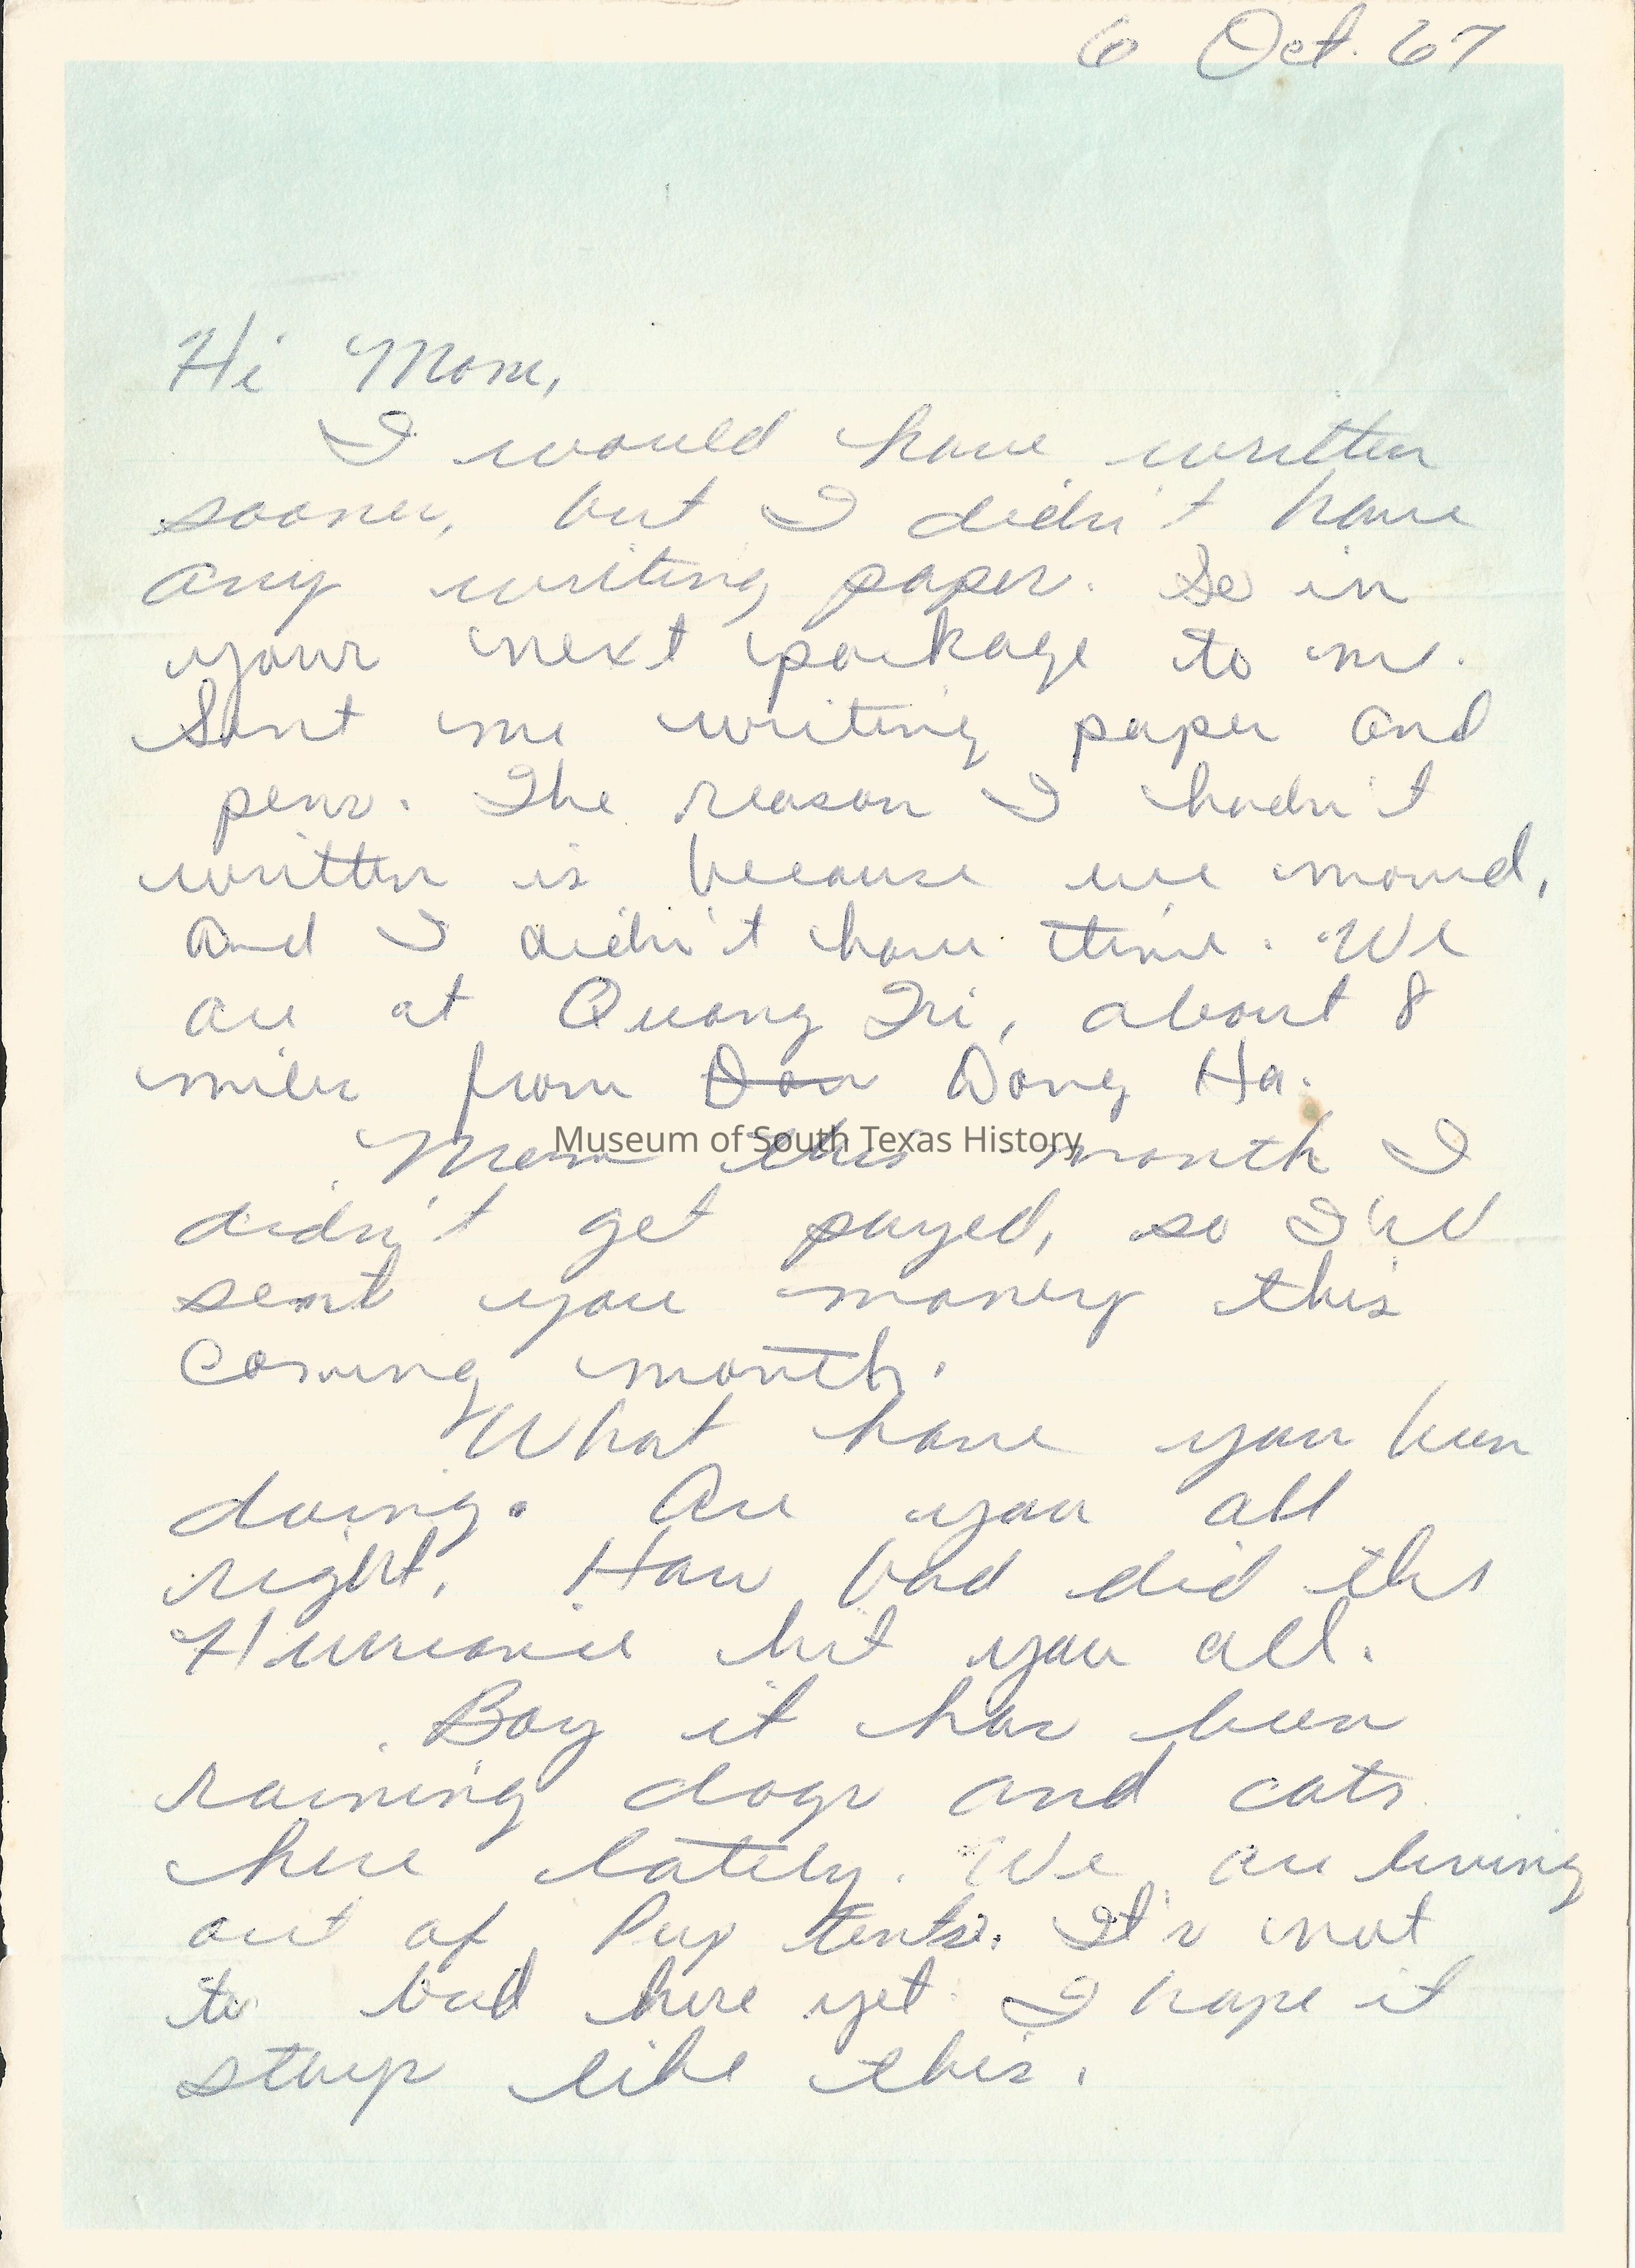 6 Oct. 67
Hi Mom,
I would have written
sooner, but I didn't have
any writing paper. So in
your next package to me.
Sent me writing paper and
pens. The reason I hadn't
written is because we moved,
and I didn't have time. We
are at Quang Tri, about 8
miles from Don Dong Ha.
Museum of South Texas History
Mom this month I
didn't get payed, so I'll
sent you money this
coming month.
What have you been
doing. Are you all
right. How bad did the
Hurricane hit you all.
Boy it has been
raining dogs and cats
here lately. We are living
out of Pup tents. It's not
to bad here yet. I hope it
stays like this.